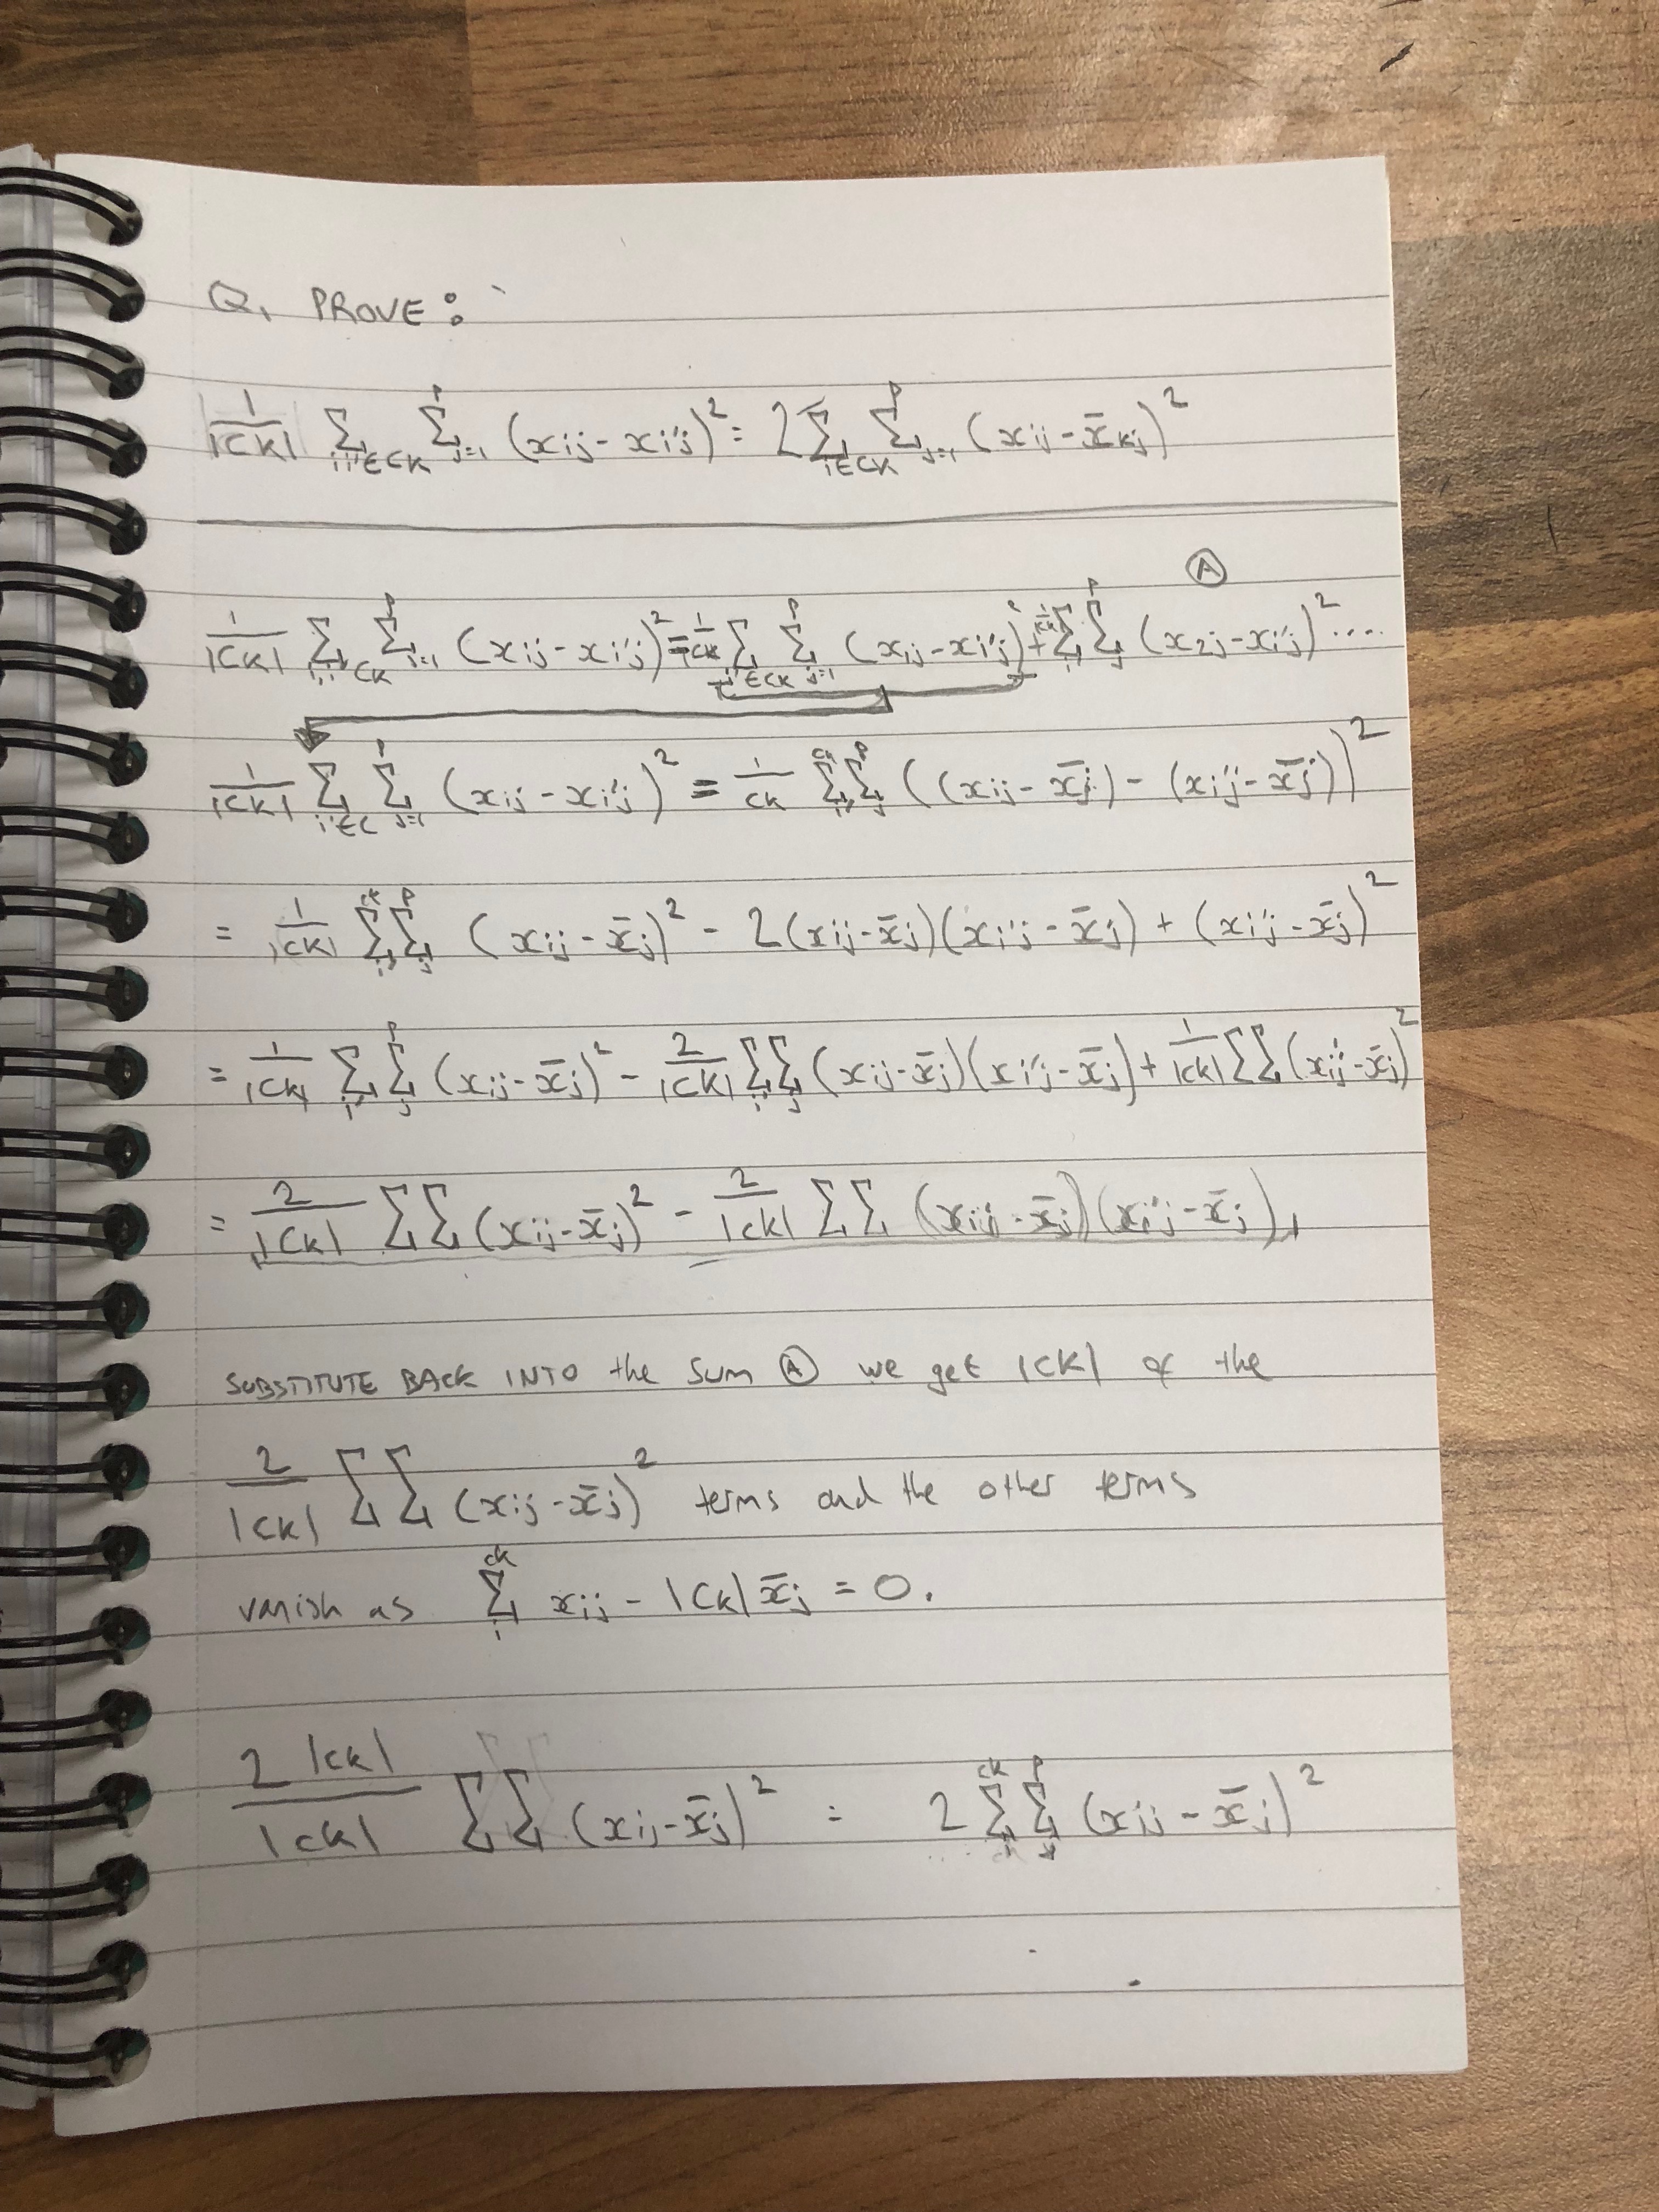 Q1 PROVE:
1/|CK| Σ_{i,i'∈CK} Σ_{j=1}^{P} (xij - xi'j)² = 2 Σ_{i∈CK} Σ_{j=1}^{P} (xij - x̄kj)²
Ⓐ
1/|CK| Σ_{i,i' CK} Σ_{j=1}^{P} (xij - xi'j)² = 1/CK Σ_{i'∈CK} Σ_{j=1}^{P} (x1j - xi'j)² + 1/|CK| Σ Σ_{j}^{P} (x2j - xi'j)² ....
1/|CK| Σ_{i'∈C} Σ_{j=1}^{P} (xij - xi'j)² = 1/CK Σ_{i'}^{CK} Σ_{j}^{P} ((xij - x̄j) - (xi'j - x̄j))²
= 1/|CK| Σ_{i'}^{CK} Σ_{j}^{P} (xij - x̄j)² - 2(xij - x̄j)(xi'j - x̄j) + (xi'j - x̄j)²
= 1/|CK| Σ_{i'} Σ_{j}^{P} (xij - x̄j)² - 2/|CK| Σ_{i'} Σ_{j} (xij - x̄j)(xi'j - x̄j) + 1/|CK| ΣΣ (xi'j - x̄j)²
= 2/|CK| ΣΣ (xij - x̄j)² - 2/|CK| ΣΣ (xij - x̄j)(xi'j - x̄j)
SUBSTITUTE BACK INTO the SUM Ⓐ we get |CK| of the
2/|CK| ΣΣ (xij - x̄j)² terms and the other terms
vanish as Σ_{i}^{CK} xij - |CK| x̄j = 0.
2|CK|/|CK| ΣΣ (xij - x̄j)² = 2 Σ_{i}^{CK} Σ_{j}^{P} (xij - x̄j)²